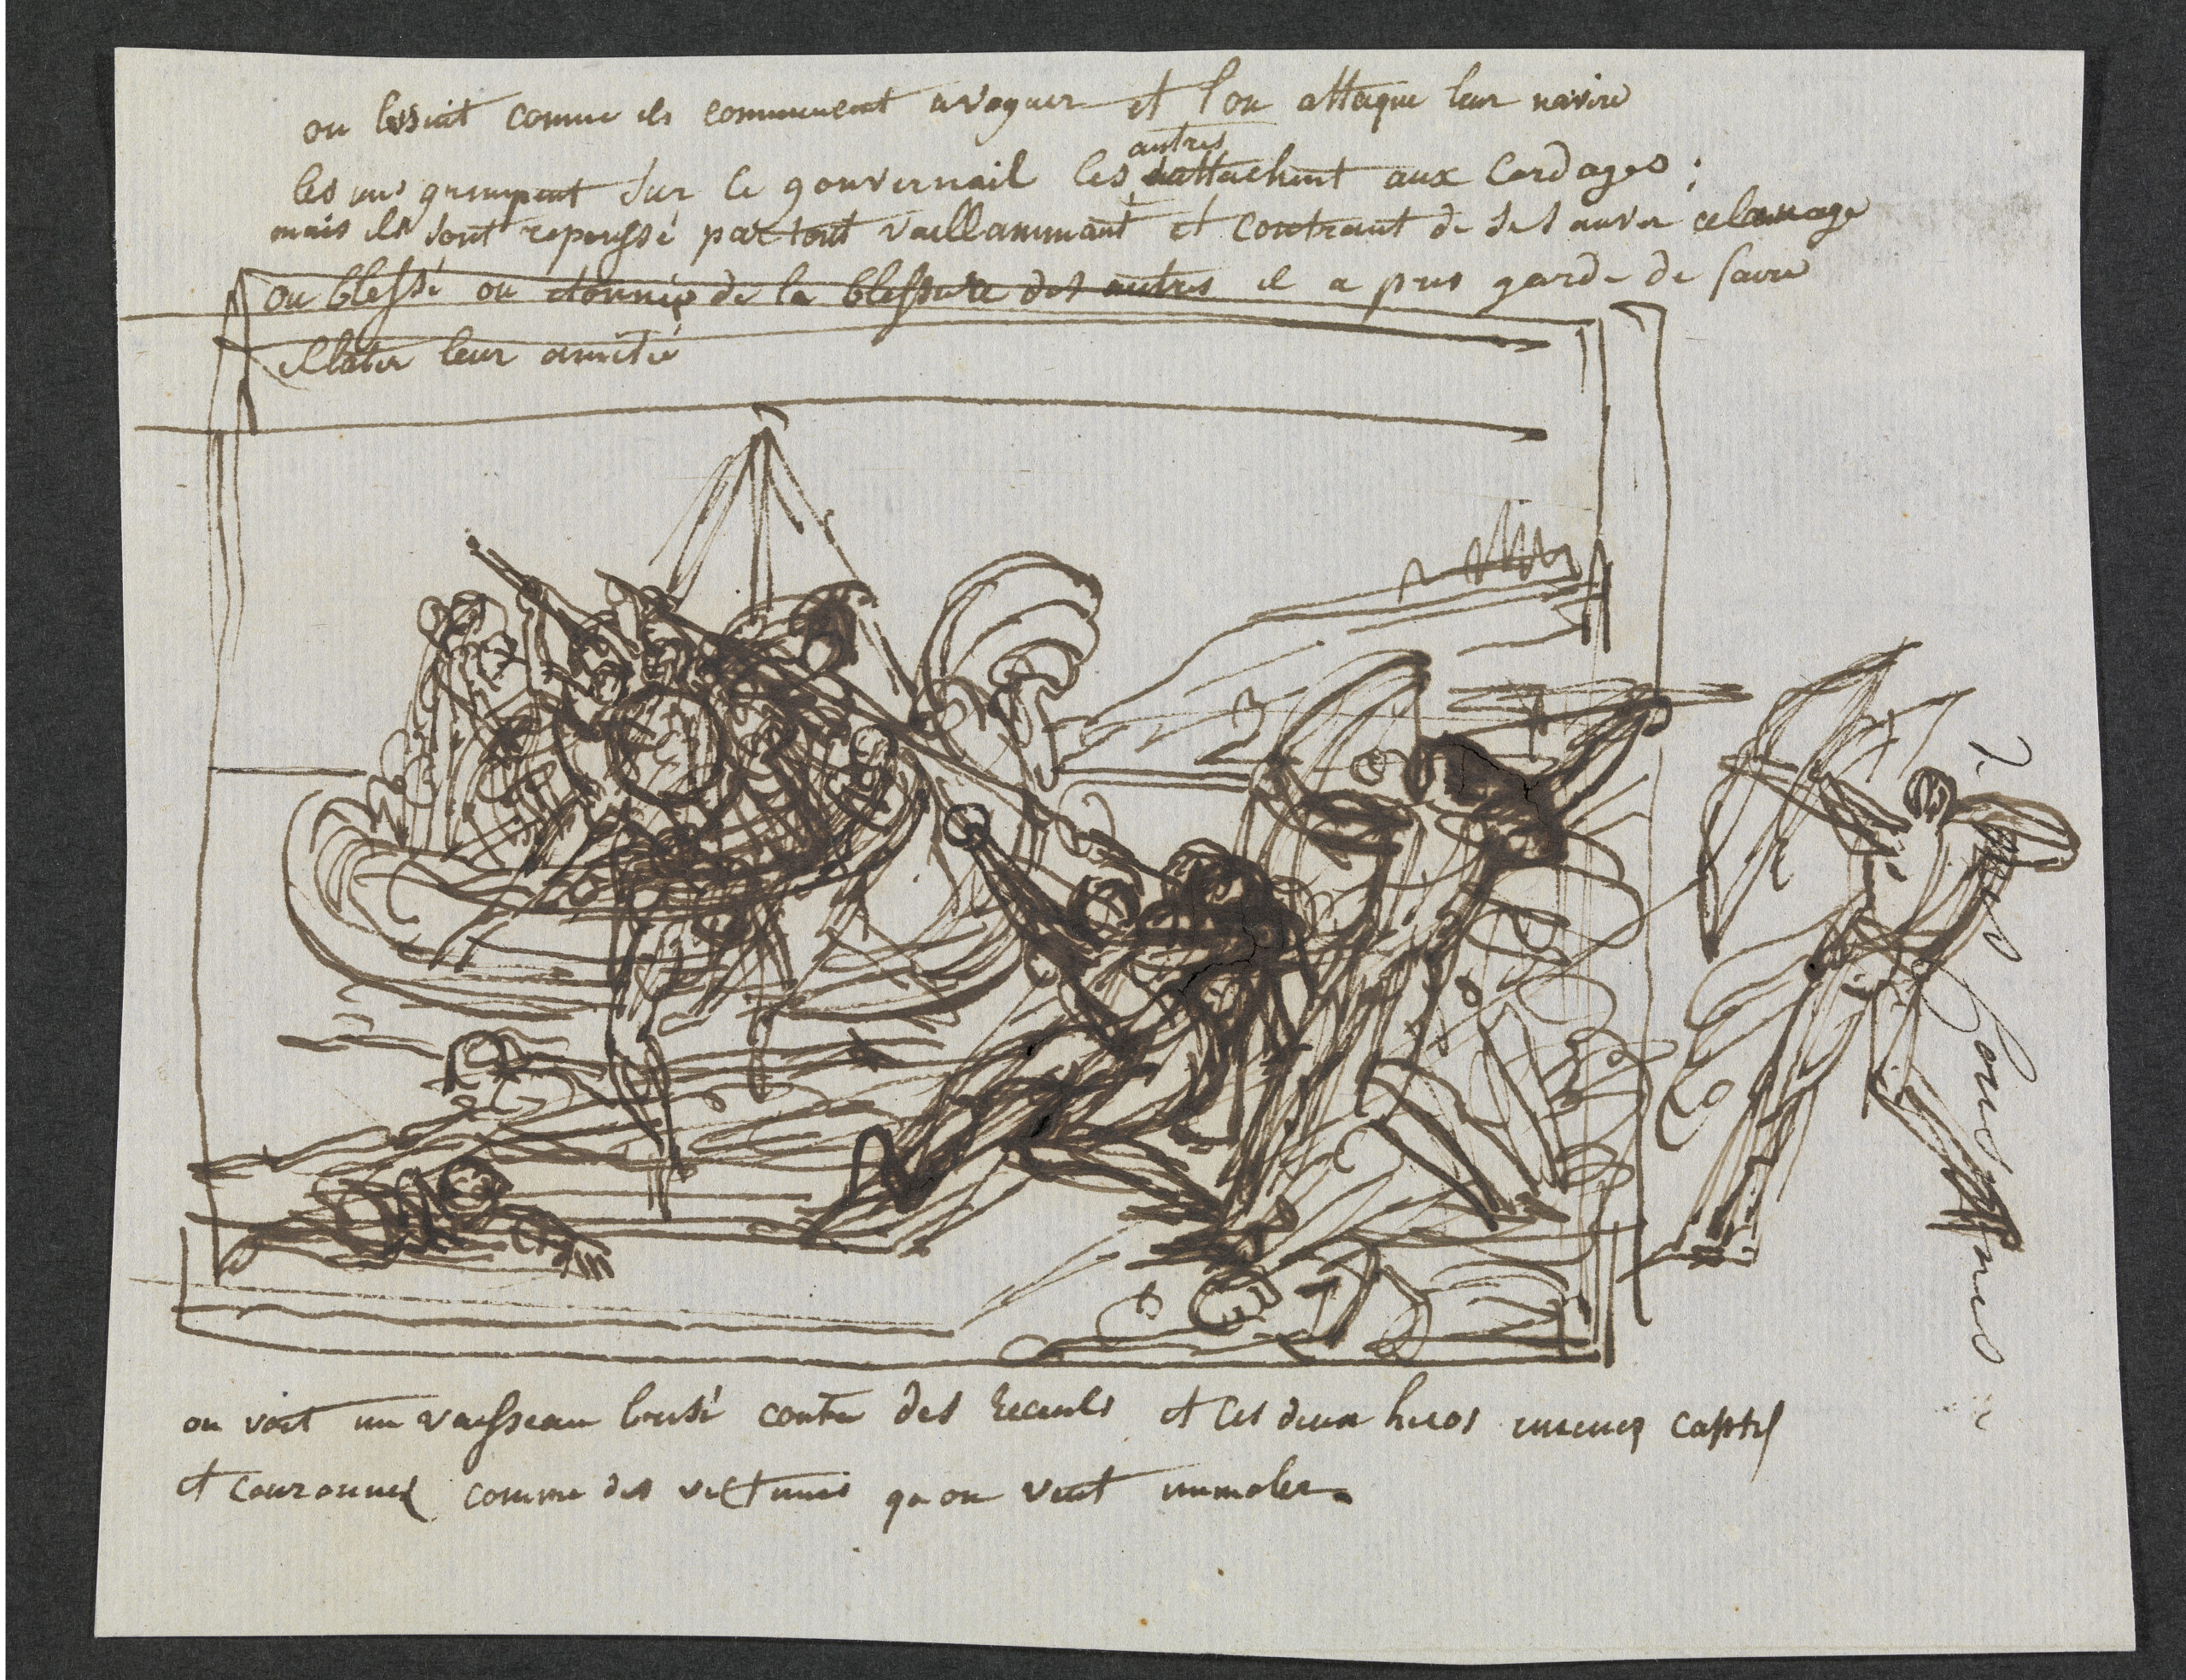 on les voit comme ils commencent a voguer et l'on attaque leur navire
autres
les uns grimpent sur le gouvernail les s'attachent aux Cordages ;
mais ils sont repoussé partout vaillammant et contraint de se sauver a la nage
ou blessé ou étonnés de la blessure des autres il a pris garde de faire
éclater leur amitié
on voit un vaisseau brisé contre des Receuils et ces deux heros menez captifs
et couronnes comme des victimes qu on veut immoler.